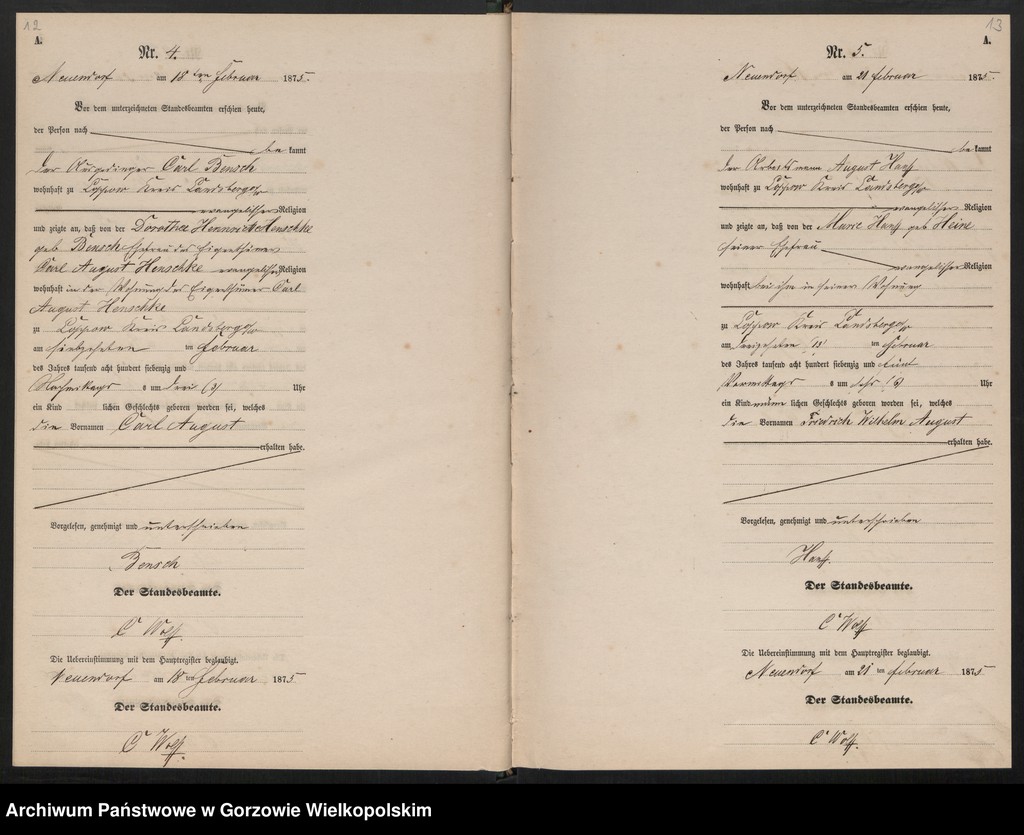 12
A.
Nr. 4.
Neuendorf am 18ten Februar 1875.
Vor dem unterzeichneten Standesbeamten erschien heute,
der Person nach
bekannt
der Ausgedinger Carl Bensch
wohnhaft zu Loppow Kreis Landsberg a/W
evangelischer Religion
und zeigte an, daß von der Dorothee Henriette Henschke
geb Bensch Ehefrau des Eigenthümers
Carl August Henschke evangelischer Religion
wohnhaft in der Wohnung des Eigenthümer Carl
August Henschke
zu Loppow Kreis Landsberg a/W
am siebzehnten ten Februar
des Jahres tausend acht hundert siebenzig und
Nachmittags s um drei (3) Uhr
ein Kind lichen Geschlechts geboren worden sei, welches
die Vornamen Carl August
erhalten habe.
Vorgelesen, genehmigt und unterschrieben
Bensch
Der Standesbeamte.
C Wolff
Die Uebereinstimmung mit dem Hauptregister beglaubigt.
Neuendorf am 18 ten Februar 1875
Der Standesbeamte.
C Wolff.
13
A.
Nr. 5.
Neuendorf am 21 Februar 1875.
Vor dem unterzeichneten Standesbeamten erschien heute,
der Person nach
bekannt
der Arbeitsmann August
wohnhaft zu Loppow Kreis Landsberg a/W
evangelischer Religion
und zeigte an, daß von der Marie geb Heine
seiner Ehefrau
evangelischer Religion
wohnhaft bei ihm in seiner Wohnung
zu Loppow Kreis Landsberg a/W
am ten Februar
des Jahres tausend acht hundert siebenzig und fünf
Vormittags s um Uhr
ein Kind männlichen Geschlechts geboren worden sei, welches
die Vornamen Friedrich Wilhelm August
erhalten habe.
Vorgelesen, genehmigt und unterschrieben
Der Standesbeamte.
C Wolff
Die Uebereinstimmung mit dem Hauptregister beglaubigt.
Neuendorf am 21 ten Februar 1875
Der Standesbeamte.
C Wolff.
Archiwum Państwowe w Gorzowie Wielkopolskim